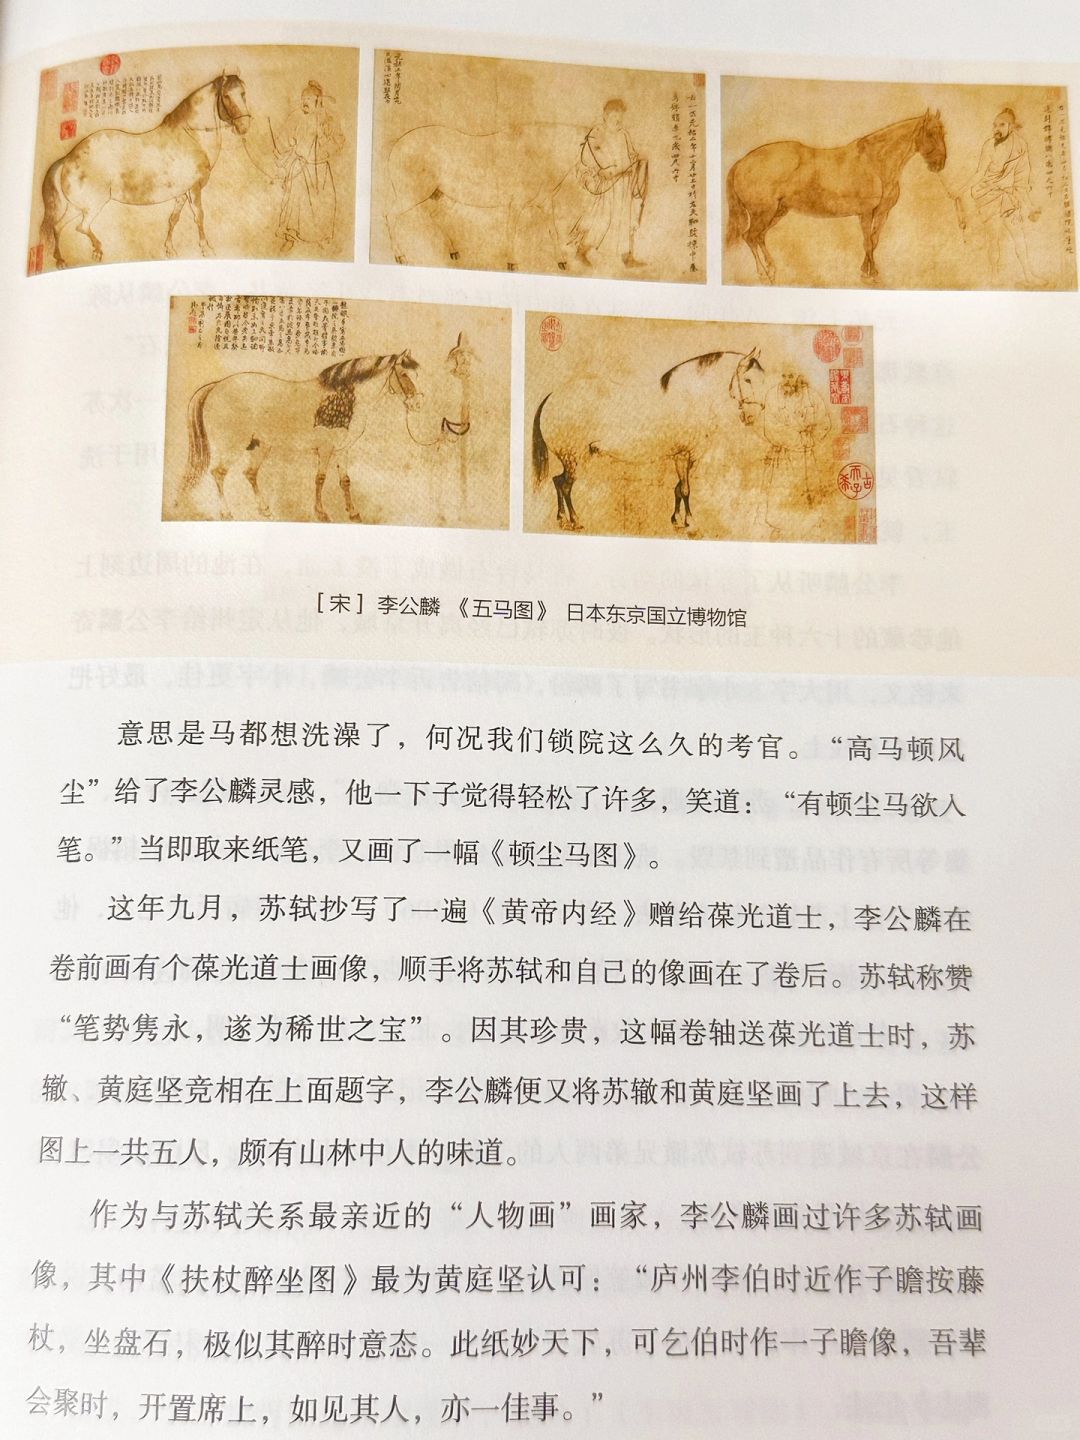 馬好頭赤九歲四尺六寸
[宋] 李公麟 《五马图》 日本东京国立博物馆
意思是马都想洗澡了，何况我们锁院这么久的考官。“高马顿风
尘”给了李公麟灵感，他一下子觉得轻松了许多，笑道：“有顿尘马欲入
笔。”当即取来纸笔，又画了一幅《顿尘马图》。
这年九月，苏轼抄写了一遍《黄帝内经》赠给葆光道士，李公麟在
卷前画有个葆光道士画像，顺手将苏轼和自己的像画在了卷后。苏轼称赞
“笔势隽永，遂为稀世之宝”。因其珍贵，这幅卷轴送葆光道士时，苏
辙、黄庭坚竞相在上面题字，李公麟便又将苏辙和黄庭坚画了上去，这样
图上一共五人，颇有山林中人的味道。
作为与苏轼关系最亲近的“人物画”画家，李公麟画过许多苏轼画
像，其中《扶杖醉坐图》最为黄庭坚认可：“庐州李伯时近作子瞻按藤
杖，坐盘石，极似其醉时意态。此纸妙天下，可乞伯时作一子瞻像，吾辈
会聚时，开置席上，如见其人，亦一佳事。”